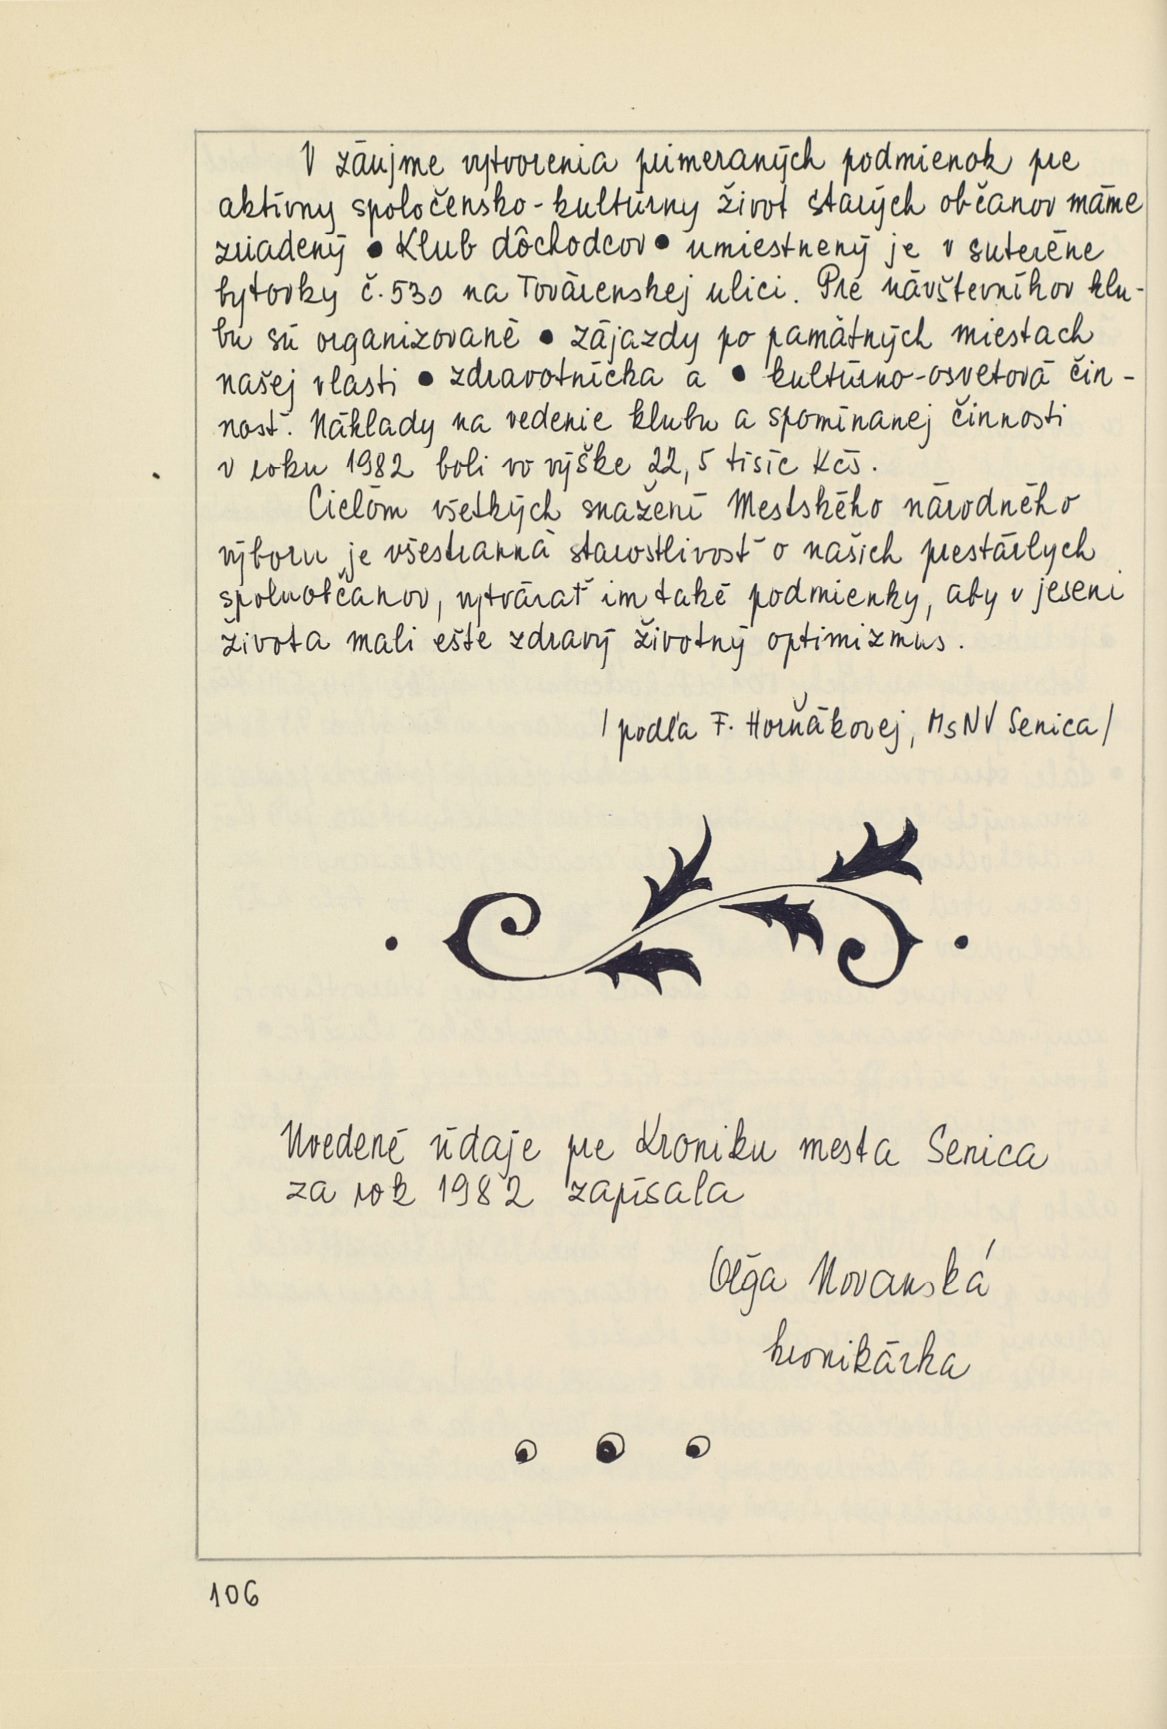 V záujme vytvorenia primeraných podmienok pre
aktívny spoločensko-kultúrny život starých občanov máme
zriadený • Klub dôchodcov • umiestnený je v suteréne
bytovky č. 530 na Továrenskej ulici. Pre návštevníkov klu-
bu sú organizované • zájazdy po pamätných miestach
našej vlasti • zdravotnícka a • kultúrno-osvetová čin-
nosť. Náklady na vedenie klubu a spomínanej činnosti
v roku 1982 boli vo výške 22,5 tisíc Kčs.
Cieľom všetkých snažení Mestského národného
výboru je všestranná starostlivosť o našich prestárlych
spoluobčanov, vytvárať im také podmienky, aby v jeseni
života mali ešte zdravý životný optimizmus.
/podľa F. Horňákovej, MsNV Senica/
Uvedené údaje pre Kroniku mesta Senica
za rok 1982 zapísala
Oľga Novanská
kronikárka
106